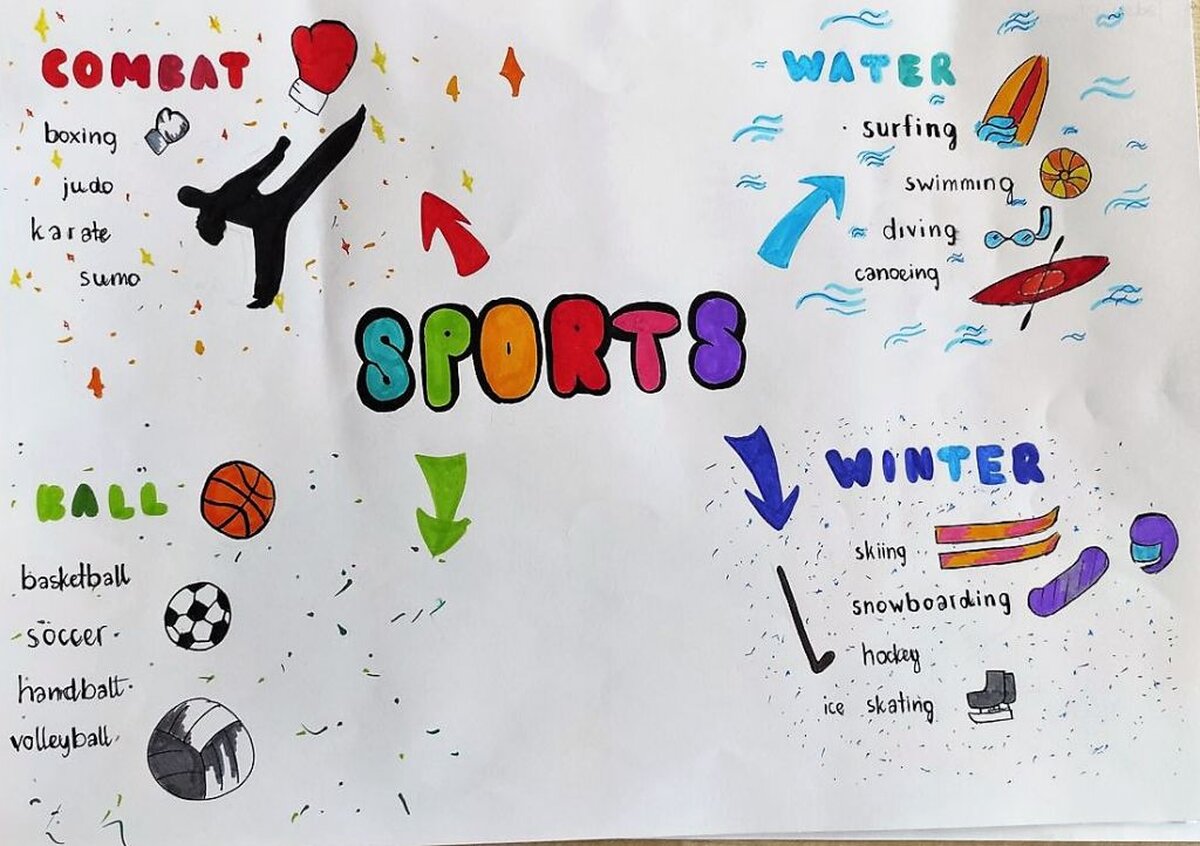 COMBAT
boxing
judo
karate
sumo
WATER
surfing
swimming
diving
canoeing
SPORTS
BALL
basketball
soccer
handball
volleyball
WINTER
skiing
snowboarding
hockey
ice skating